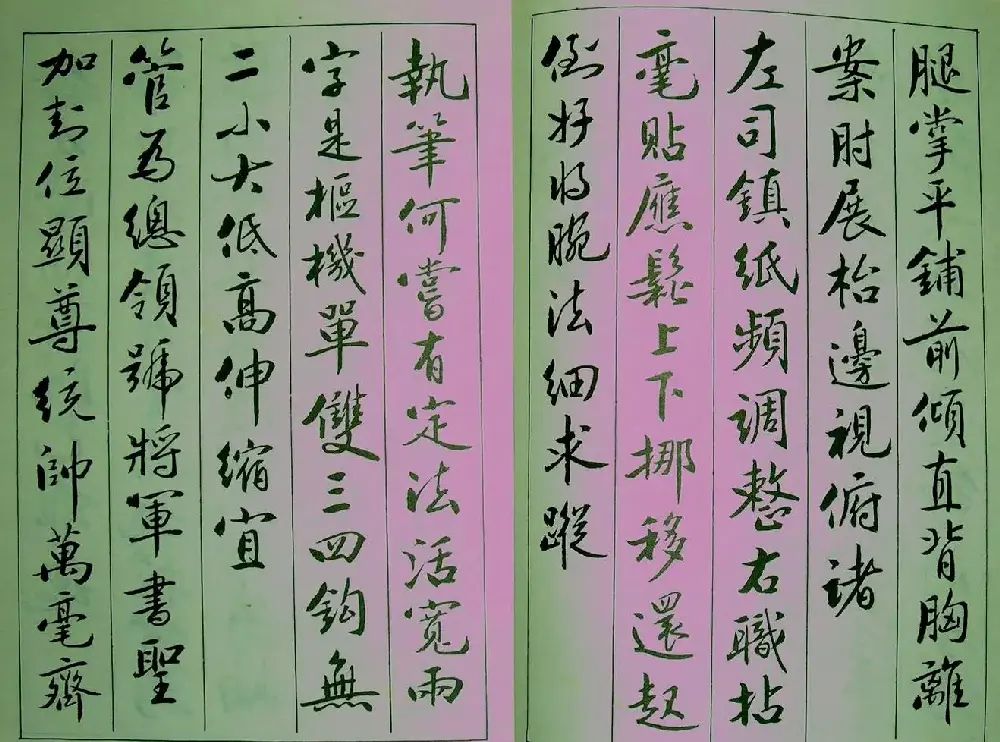 腿掌平鋪前傾直背胸離
案肘展枱邊視俯諸
左司鎮紙頻調整右職拈
毫貼應鬆上下挪移還起
倒好將腕法細求蹤
執筆何嘗有定法活寬兩
字是樞機單雙三四鈎無
二小大低高伸縮宜
管為總領號將軍書聖
加封位顯尊統帥萬毫齊